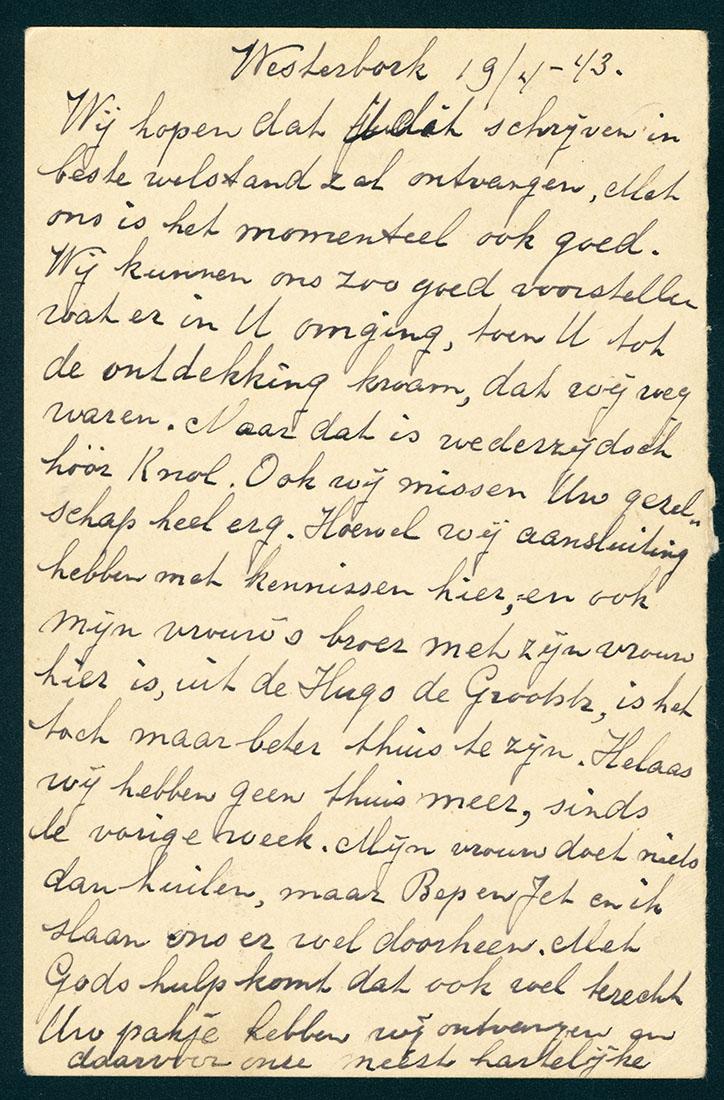 Westerbork 19/4-43.
Wij hopen dat U dit schrijven in
beste welstand zal ontvangen, Met
ons is het momenteel ook goed.
Wij kunnen ons zoo goed voorstellen
wat er in U omging, toen U tot
de ontdekking kwam, dat wij weg
waren. Maar dat is wederzijdsch
hóór Knol. Ook wij missen Uw gezel„
schap heel erg. Hoewel wij aansluiting
hebben met kennissen hier, en ook
mijn vrouw's broer met zijn vrouw
hier is, uit de Hugo de Grootstr, is het
toch maar beter thuis te zijn. Helaas
wij hebben geen thuis meer, sinds
de vorige week. Mijn vrouw doet niets
dan huilen, maar Bep en Jet en ik
slaan ons er wel doorheen. Met
Gods hulp komt dat ook wel terecht
Uw pakje hebben wij ontvangen en
daarvoor onze meest hartelijke